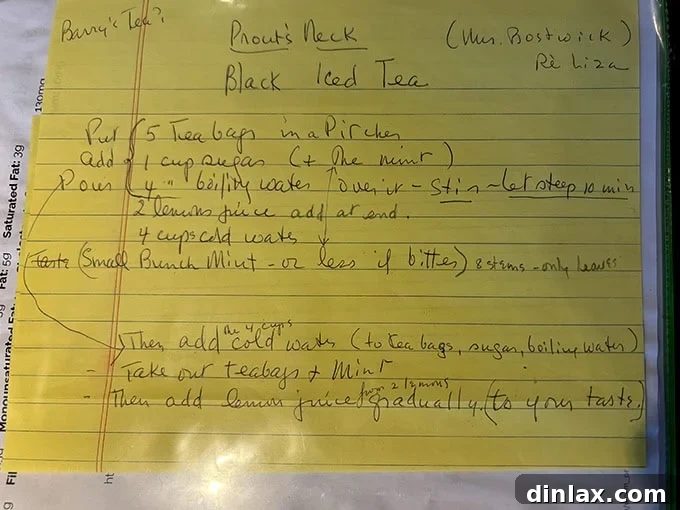 Barry's Tea?
Prout's Neck
(Mrs. Bostwick)
Re Liza
Black Iced Tea
Put 5 Tea bags in a Pitcher
add 1 cup sugar (+ the mint)
Pour 4 " boiling water over it - Stir - Let steep 10 min
2 lemons juice add at end.
4 cups cold water
Taste (Small Bunch Mint - or less if bitter) 8 stems - only leaves
the 4 cups
Then add cold water (to tea bags, sugar, boiling water)
- Take out teabags + Mint
from 2 lemons
- Then add lemon juice gradually. (to your taste.)
130mg
Saturated Fat: 3g
Fat: 5g
Monounsaturated Fat:
Fil
ht
dinlax.com